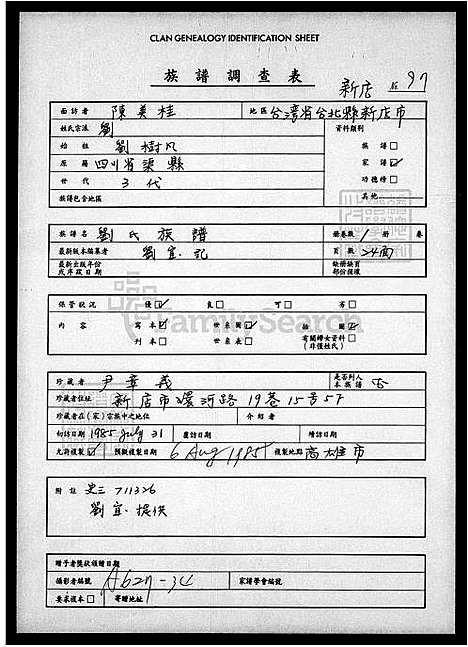 CLAN GENEALOGY IDENTIFICATION SHEET
族譜調查表
新店 97
面訪者 陳美桂 地區 台湾省台北縣新店市
姓氏宗派 劉 資料類別
始祖 劉樹凡 族譜 □
原籍 四川省渠縣 家譜 ☑
世代 3代 功德榜 □
族譜包含地區 其他
族譜名 劉氏族譜 冊卷數 1 冊 卷
最新版本編纂者 劉宜記 頁數 24面
最新出版年份 或序跋日期 缺冊缺頁 部份援據
保管狀況 優 ☑ 良 □ 可 □ 劣 □
內容 寫本 ☑ 世系圖 ☑ 插圖 ☑
刊本 □ 世系表 □ 有關婦女資料 □ (非僅姓氏)
FamilySearch
珍藏者 尹章義 是否列入本族譜 否
珍藏者住址 新店市環河路19巷15号5F
珍藏者在(家)宗族中之地位 介紹者
初訪日期 1985 July 31 覆訪日期 續訪日期
允許複製 ☑ 預擬複製日期 6 Aug 1985 複製地點 高雄市
附註 史三 711326
劉宜 提供
贈予者獎狀頒贈日期
攝影者編號 A627-34 家譜學會編號
要求複本 □ 寄贈地址